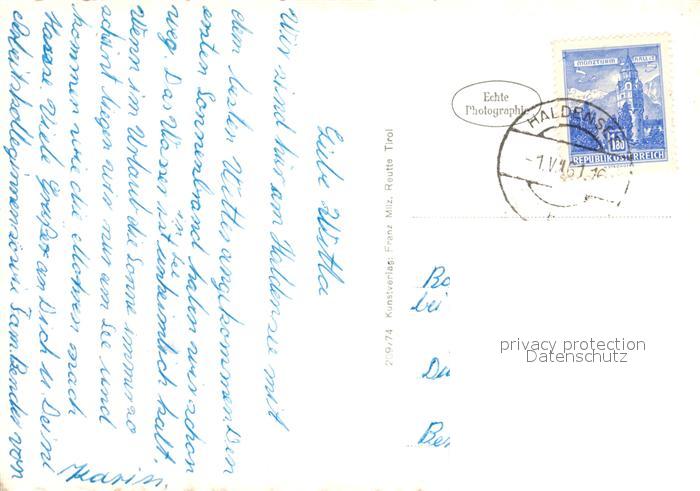 Liebe Wilta
Wir sind hier am Haldensee mit
dem besten Wetter angekommen. Den
ersten Sonnenbrand haben wir schon
weg. Das Wasser ist unheimlich kalt.
im See
Wenn im Urlaub die Sonne immer so
scheint liegen wir nur am See und
kommen wie die Mohren nach
Hause. Viele Grüße an Dich u. Deine
Arbeitskolleginnen sowie Fam. Bender von
Karin.
209/74 Kunstverlag: Franz Milz, Reutte Tirol
Echte
Photographie
MÜNZTURM HALL
1.80
REPUBLIK ÖSTERREICH
HALDENSEE
-1.V.
bei
privacy protection
Datenschutz